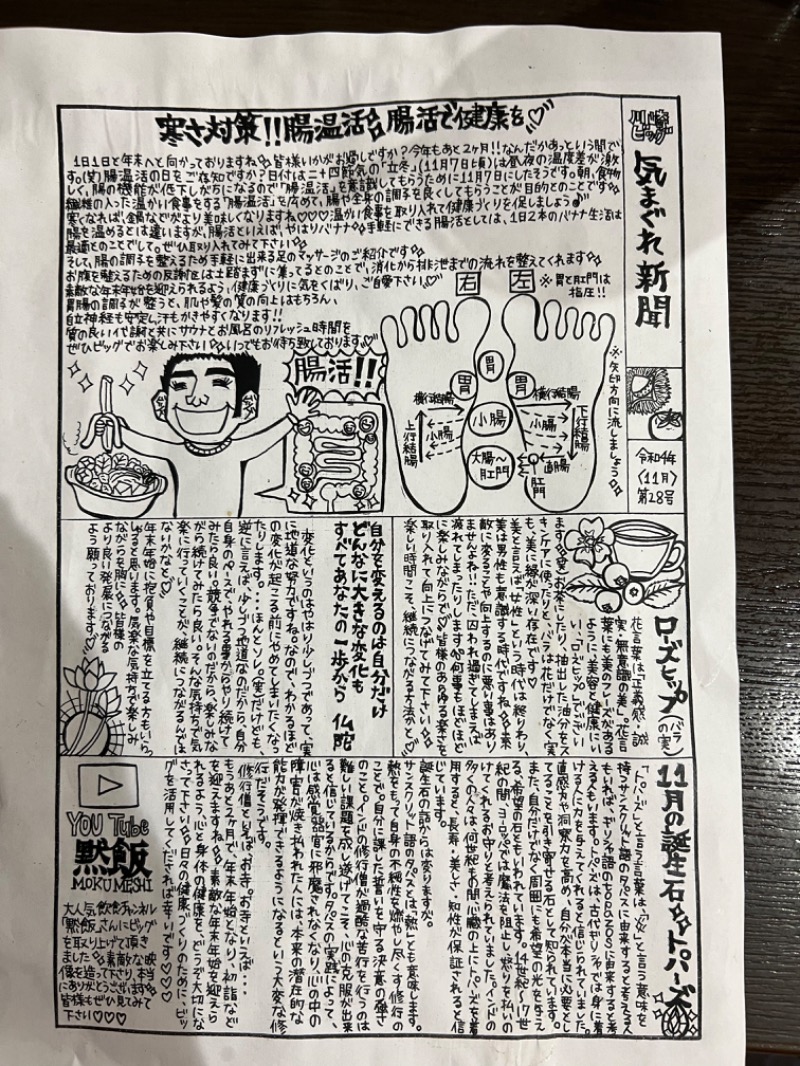 寒さ対策!!腸温活&腸活で健康を♡
川崎
ビッグ
気まぐれ新聞
令和4年
〈11月〉
第28号
1日1日と年末へと向かっておりますね。皆様いかがお過しですか?今年もあと2ヶ月!!なんだかあっという間で
す。(笑)腸温活の日をご存知ですか?日付は二十四節気の「立冬」(11月7日頃)は昼夜の温度差が激
しく、腸の機能が低下しがちになるので「腸温活」を意識してもらうために11月7日にしたそうです。朝、食物
繊維の入った温かい食事をする「腸温活」を広めて、腸や全身の調子を良くしてもらうことが目的とのことです
寒くなれば、金鍋などがより美味しくなりますね♡♡♡温かい食事を取り入れて健康づくりを促しましょう
腸を温めるとは違いますが、腸活といえば、やはりバナナ 手軽にできる腸活としては、1日2本のバナナ生活は
最適とのことでして。ぜひ取り入れてみて下さい
そして、腸の調子を整えるため手軽に出来る足のマッサージのご紹介です
お腹を整えるための反射区は土踏まずに集ってるとのことで、消化から排泄までの流れを整えてくれます
素敵な年末年始を迎えられるよう、健康づくりに気をくばり、ご自愛下さい。♡
胃腸の調子が整うと、肌や髪の質の向上はもちろん、
自立神経も安定し汗もかきやすくなります!!
質の良い代謝と共にサウナとお風呂のリフレッシュ時間を
ぜひビッグでお楽しみ下さい いつでもお待ち致しております♡
右
左
※胃と肛門は
指圧!!
※矢印方向に流しましょう
腸活!!
胃
胃
胃
横行結腸
横行結腸
小腸
小腸
小腸
上行結腸
下行結腸
大腸〜
肛門
直腸
肛門
ローズヒップ
(バラの実)
花言葉は「正義感・誠
実・無意識の美」。花言
葉にも美のフレーズがある
ように、美容と健康にい
い、「ローズヒップ」でござい
ます 実をお茶にしたり、抽出した油分をス
キンケアに使ったりと、バラは花だけでなく実
も、美に縁が深い存在です♡
美と言えば「女性」という時代は終りわり、
美は男性も意識する時代ですね 素
敵に変ることや向上するのに悪い事はあり
ませんよね!!ただ、囚われ過ぎてしまえば
疲れてしまったりします 何事もほどほど
に楽しみながらで♡皆様のあらゆる楽さを
取り入れて向上につなげてみて下さい
楽しい時間こそ、継続につながる方法かと♡
自分を変えるのは自分だけ
どんなに大きな変化も
すべてあなたの一歩から 仏陀
変化というのはやはり少しづつであって、実
に地道な努力ですね。なので、わかるほど
の変化が起こる前にやめてしまいたくなっ
たりします・・・ほんとソレ。(笑)だけども、
逆に言えば、少しづつ地道なのだから、自分
自身のペースで、やれる事からやり続けて
みたら良い。競争でないのだから、楽しみな
がら続けてみたら良い。そんな気持ちで気
楽に行っていくことが、継続につながるんでは
ないかなと♡
年末年始に抱負や目標を立てる方もいらっ
しゃると思います。気楽な気持ちで楽しみ
ながらを胸に 皆様の
より良い発展につながる
よう願っております♡
11月の誕生石 トパーズ
「トパーズ」と言う言葉は、「火」と言う意味を
持つサンスクリット語のタパスに由来すると考える人
もいれば、ギリシャ語のtopazosに由来すると考
える人もいます。トパーズは、古代ギリシャでは身に着
ける人に力を与えてくれると信じられていました。
直感力や洞察力を高め、自分が本当に必要とし
てることを引き寄せる石として知られています。
また、自分だけでなく周囲にも希望の光を与え
る、「希望の石」ともいわれています。14世紀〜17世
紀の間、ヨーロッパでは魔法を阻止し怒りを払いの
けてくれるお守りと考えられていました。インドの
多くの人々は何世紀もの間心臓の上にトパーズを着
用すると、長寿・美しさ・知性が保証されると信
じています。
誕生石の話からは変りますが。
サンスクリット語のタパスとは、「熱」とも意味します。
熱をもって自身の不純性を燃やし尽くす修行の
ことで。自分に課した誓いを守る決意の強さ
のこと。インドの修行僧が過酷な苦行を行うのは
難しい課題を成し遂げてこそ、心の克服が出来
ると信じているからです。タパスの実践によって、
心は感覚器官に邪魔されなくなり、心の中の
障害が焼き払われた人には、本来の潜在的な
能力が発揮できるようになるという大変な修
行だそうです。
修行僧といえばお寺。お寺といえば・・・
もうあと1ヶ月で、年末年始となり、初詣など
を迎えますね 素敵な年末年始を迎えら
れるよう、心と身体の健康を、どうぞ大切にな
さって下さい 日々の健康づくりのために、ビッ
グを活用してくだされば幸いです♡♡
YOU Tube
黙飯
MOKUMESHI
大人気飲食チャンネル
「黙飯」さんにビッグ
を取り上げて頂き
ました 素敵な映
像を造って下り、本当
にありがとうございます
皆様もぜひ見てみて
下さい♡♡♡